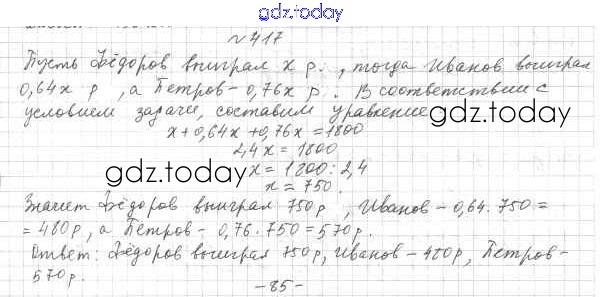 gdz.today
№417
Пусть Фёдоров выиграл x р., тогда Иванов выиграл
0,64x р, а Петров - 0,76x р. В соответствии с
условием задачи, составим уравнение
gdz.today
x+0,64x+0,76x=1800
2,4x=1800
gdz.today
x=1800:2,4
x=750.
Значит Фёдоров выиграл 750р, Иванов - 0,64.750=
=480р, а Петров - 0,76.750=570р.
Ответ: Фёдоров выиграл 750р, Иванов - 480р, Петров-
570р.
-85-